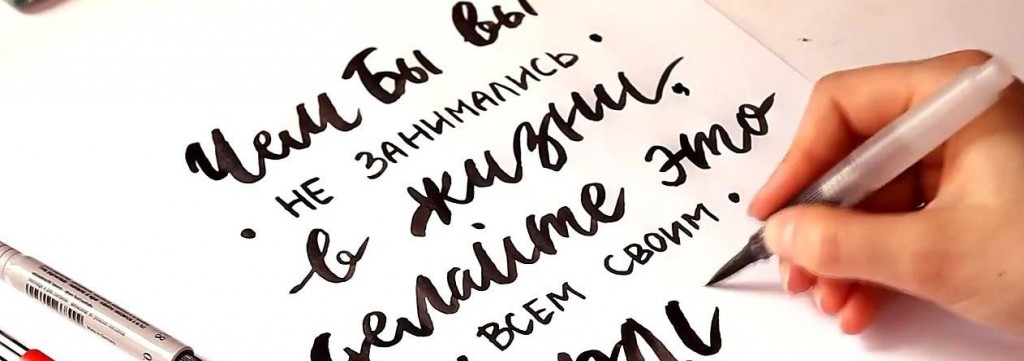 Чем бы вы
• не занимались •
в жизни,
делайте это
всем своим •